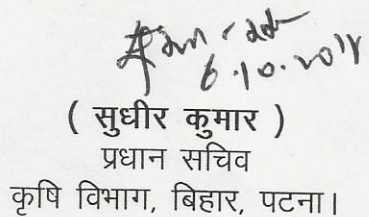 6.10.2018
( सुधीर कुमार )
प्रधान सचिव
कृषि विभाग, बिहार, पटना।